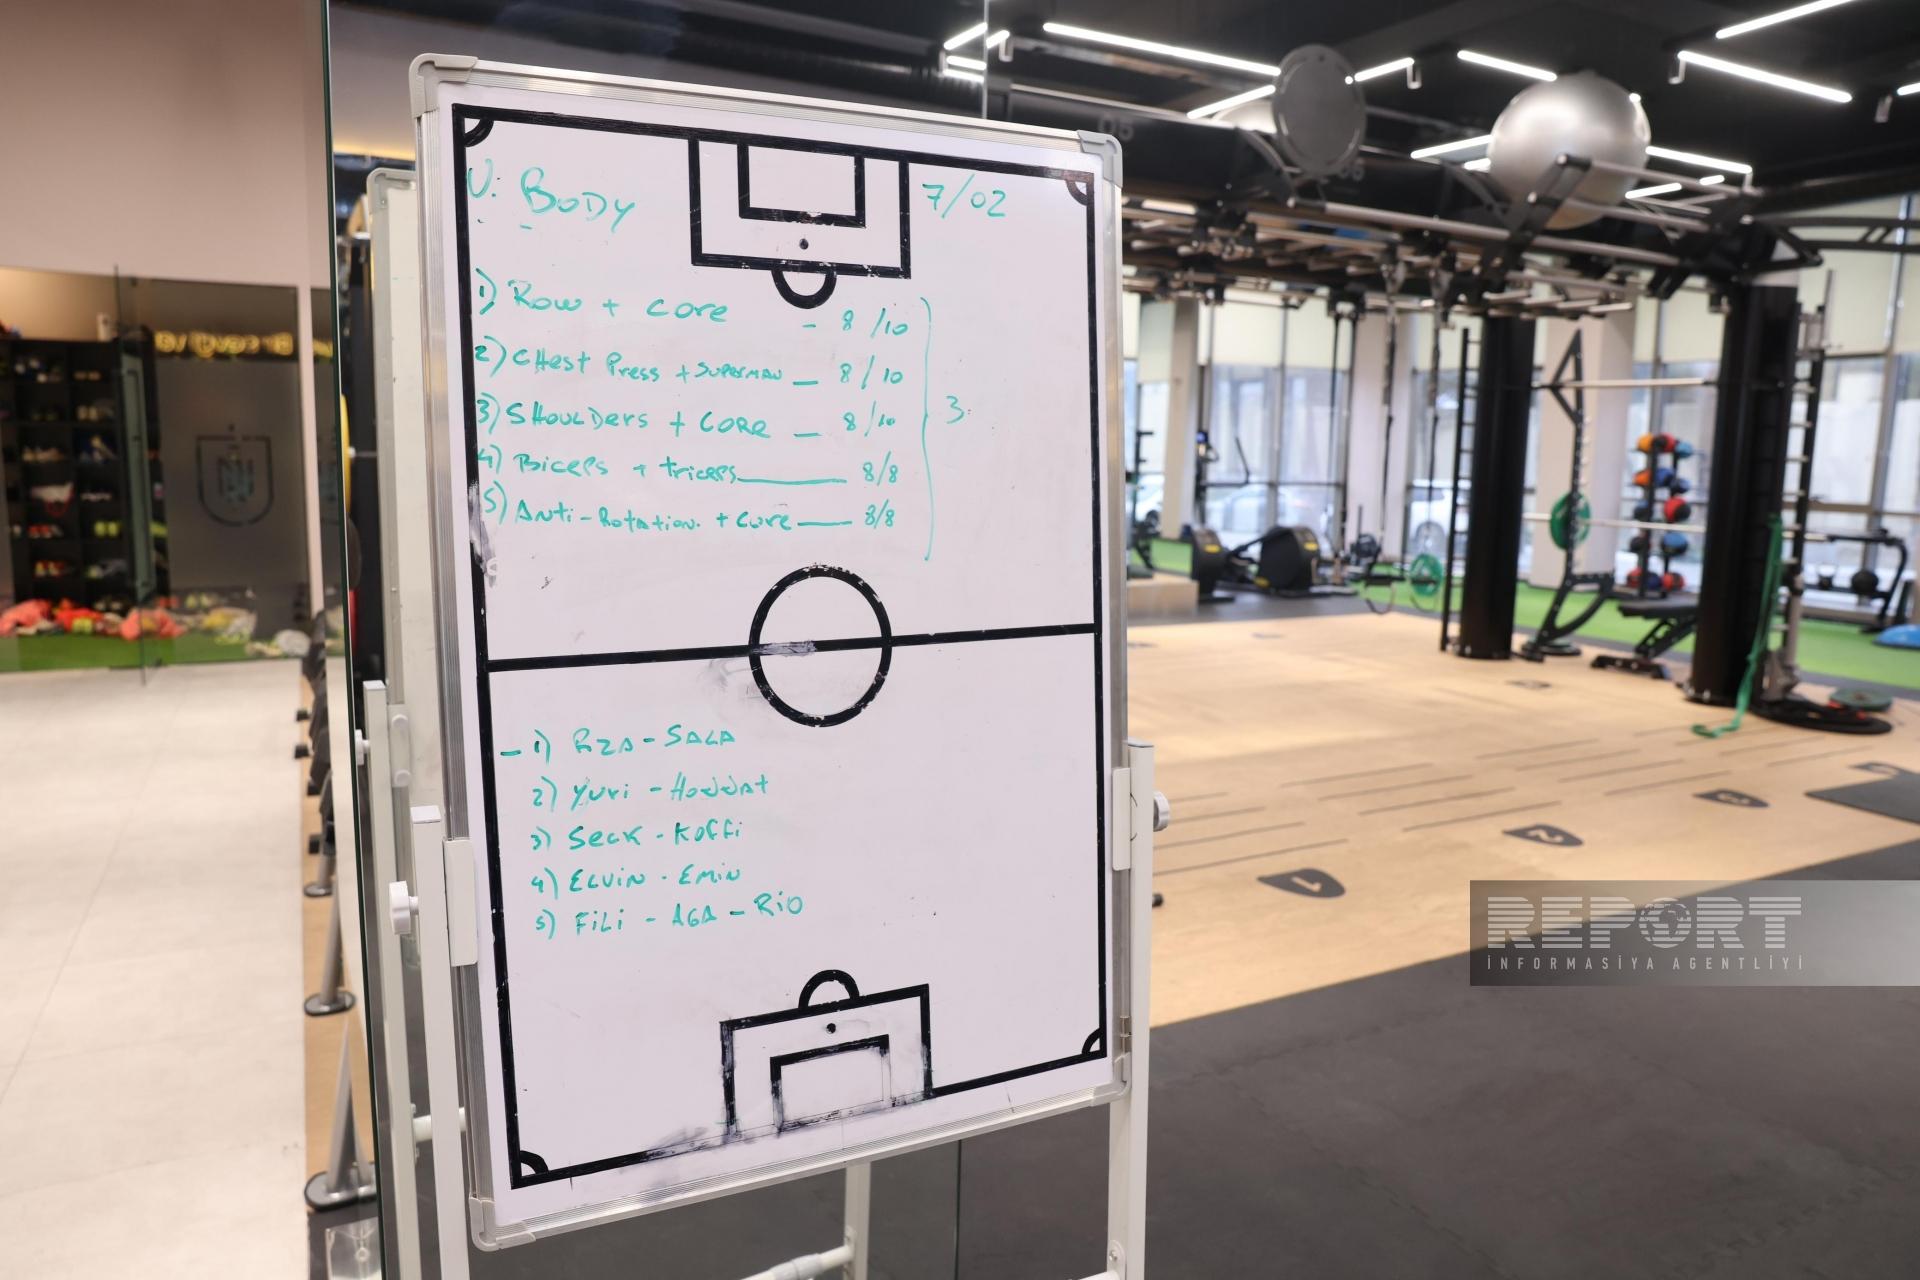 U. BODY
7/02
1) Row + core - 8/10
2) CHest Press + SUPERMAN - 8/10
3) SHOULDers + CORe - 8/10
3.
4) Biceps + triceps 8/8
5) Anti-Rotation. + core 8/8
- 1) RZA - SALA
2) Yuri - Hoddat
3) Seck - Koffi
4) ELVIN - EMIN
5) FiLi - AGA - RIO
1
2
3
REPORT
İNFORMASİYA AGENTLİYİ